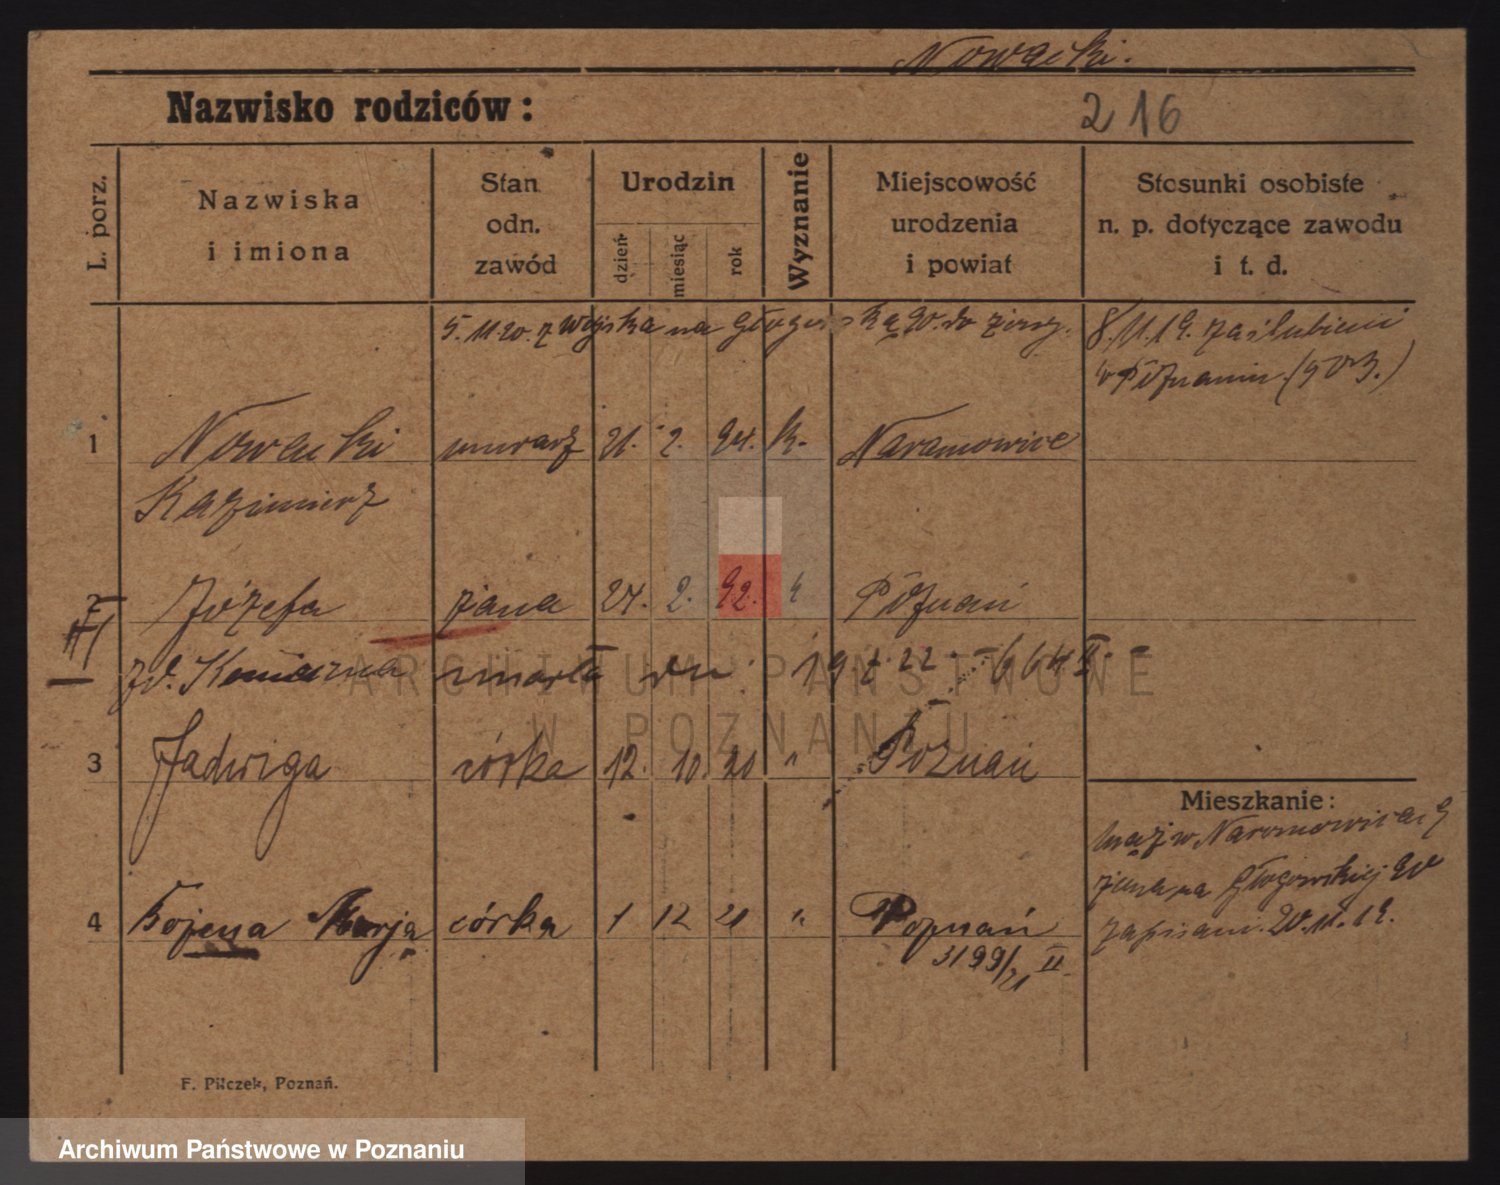 Nowacki.
Nazwisko rodziców:
216
L. porz.
Nazwiska
i imiona
Stan
odn.
zawód
Urodzin
dzień
miesiąc
rok
Wyznanie
Miejscowość
urodzenia
i powiat
Stosunki osobiste
n. p. dotyczące zawodu
i t. d.
5.11.20. z Wojska na Głogowską 90. do żony.
8.11.19. zaślubieni
w Poznaniu
1 Nowacki murarz 21. 2. 94. k. Naramowice
Kazimierz
2 Józefa żona 24. 2. 92. Poznań
III
zd. zmarła dn. 22 664 II
3 Jadwiga córka 12. 10. 20 " Poznań
Mieszkanie:
mąż w Naramowicach
żona na Głogowskiej 90
zapisani 20.11.19.
4 Bożena Marja córka 1 12 21 " Poznań
3199/21 II
F. Pilczek, Poznań.
ARCHIWUM PAŃSTWOWE
W POZNANIU
Archiwum Państwowe w Poznaniu